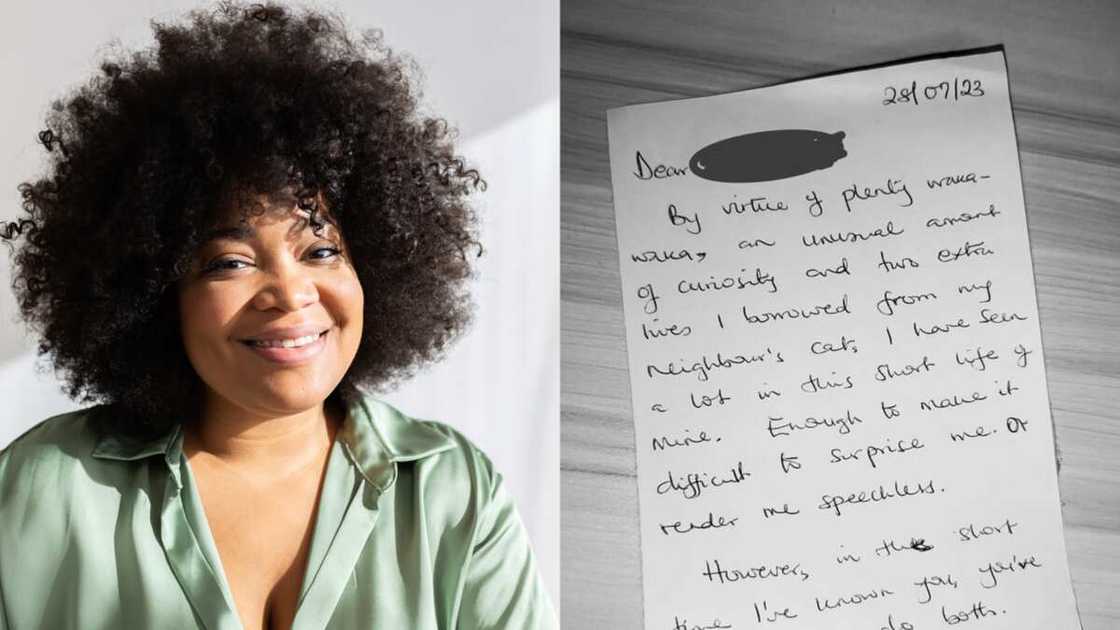 28/07/23
Dear
By virtue of plenty waka-
waka, an unusual amount
of curiosity and two extra
lives I borrowed from my
neighbour's cat, I have seen
a lot in this short life of
mine. Enough to make it
difficult to surprise me. Or
render me speechless.
However, in the short
time I've known you, you've
do both.